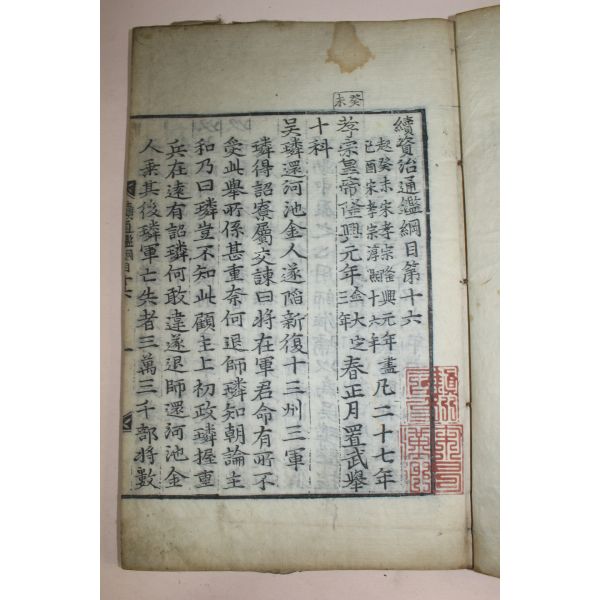 癸未
續資治通鑑綱目第十六
起癸未宋孝宗隆興元年盡
己酉宋孝宗淳熙十六年
凡二十七年
孝宗皇帝隆興元年
金大定
三年
春正月置武舉
十科
吳璘還河池金人遂陷新復十三州三軍
璘得詔寮屬交諫曰將在軍君命有所不
受此舉所係甚重奈何退師璘知朝論主
和乃曰璘豈不知此顧主上初政璘握重
兵在遠有詔璘何敢違遂退師還河池金
人乘其後璘軍亡失者三萬三千部將數